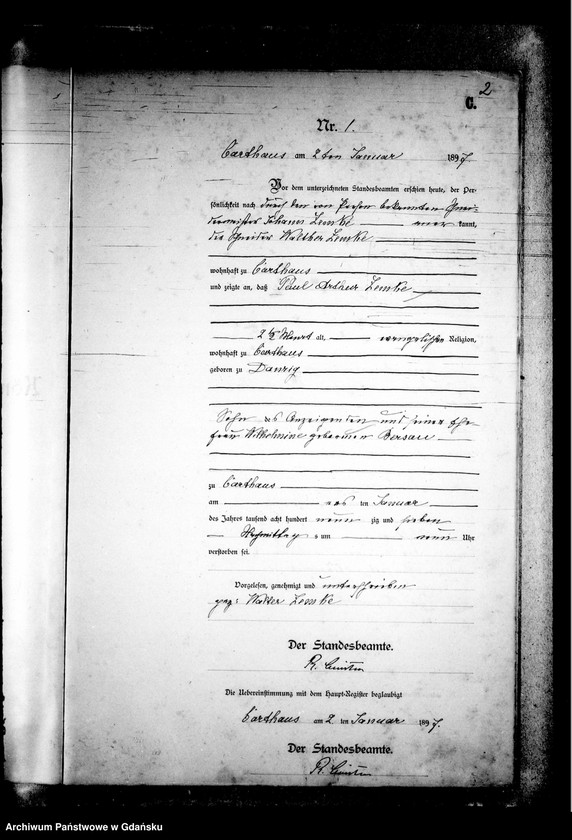 2
C.
Nr. 1.
Carthaus am 2ten Januar 1897
Vor dem unterzeichneten Standesbeamten erschien heute, der Per-
sönlichkeit nach durch den von Person bekannten
Johann Lemke kannt,
der Schneider Walther Lemke
wohnhaft zu Carthaus
und zeigte an, daß Paul Arthur Lemke
2 1/2 Monat alt, evangelischer Religion,
wohnhaft zu Carthaus
geboren zu Danzig
Sohn des Anzeigenden und seiner Ehe-
frau Wilhelmine geborenen
zu Carthaus
am ten Januar
des Jahres tausend acht hundert neun zig und sieben
Nachmittag s um neun Uhr
verstorben sei.
Vorgelesen, genehmigt und unterschrieben
gez: Walter Lemke
Der Standesbeamte.
R.
Die Uebereinstimmung mit dem Haupt-Register beglaubigt
Carthaus am 2 ten Januar 1897.
Der Standesbeamte.
R.
Archiwum Państwowe w Gdańsku